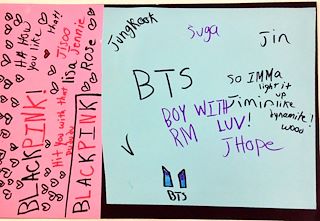 H# How
you like
that
Ha!!
Jisoo
Jennie
lisa
Rose
BLACKPINK!
Hit you with that
BLACKPINK
Jungkook
Suga
Jin
BTS
So IMMA
light it
up
like
dynamite!
woooo
BOY WITH
LUV!
Jimin
RM
JHope
V
BTS